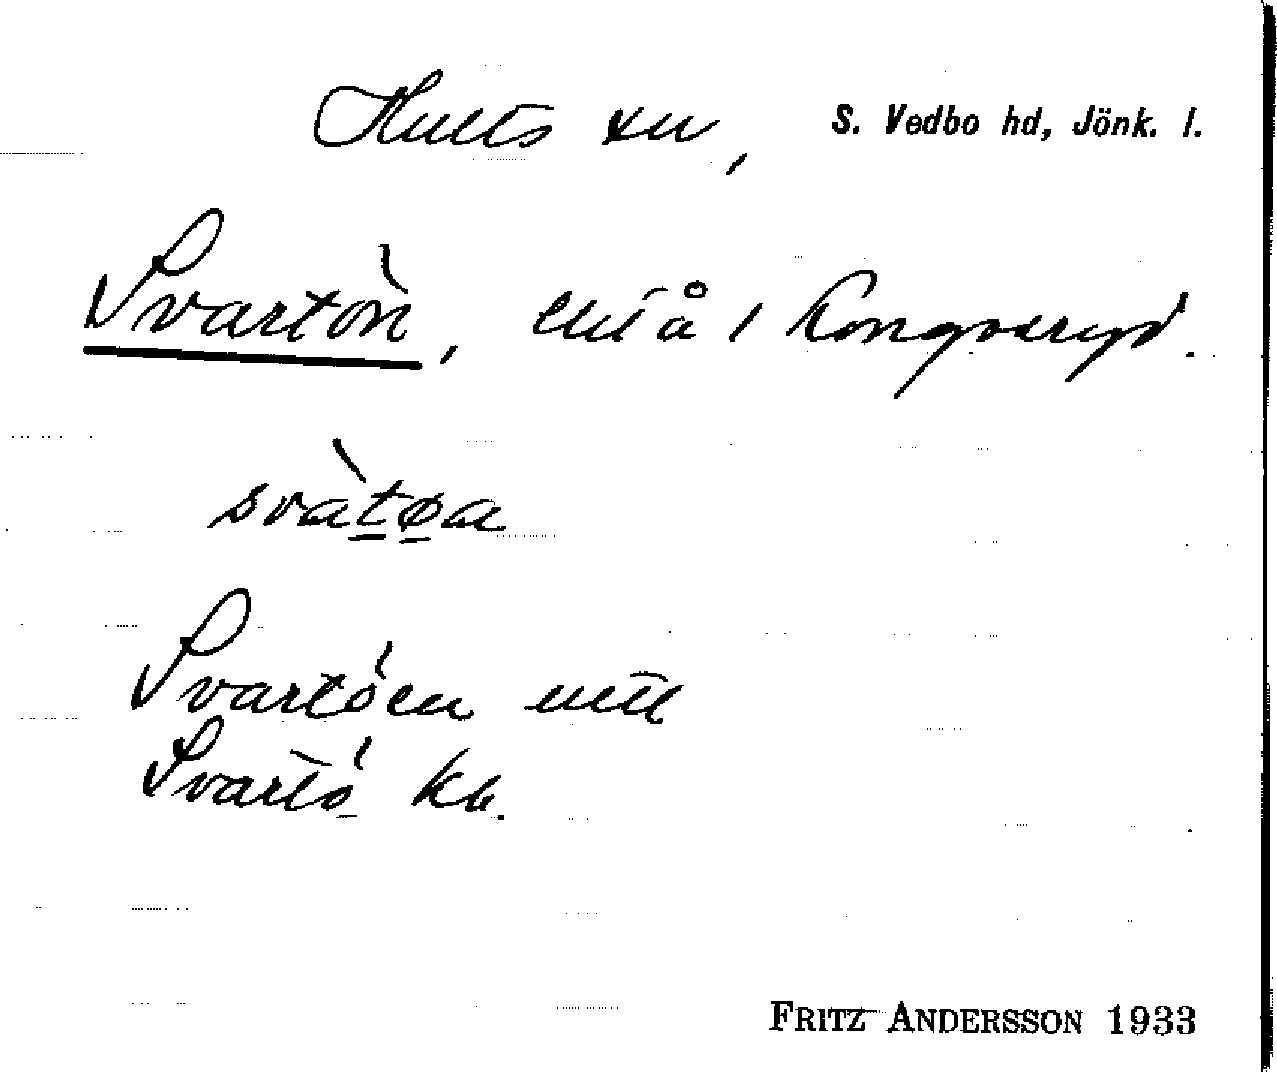 Hults sn, S. Vedbo hd, Jönk. l.
Svartön, i Kongseryd.
svàtøa
Svartöen
Svartö kb.
FRITZ ANDERSSON 1933